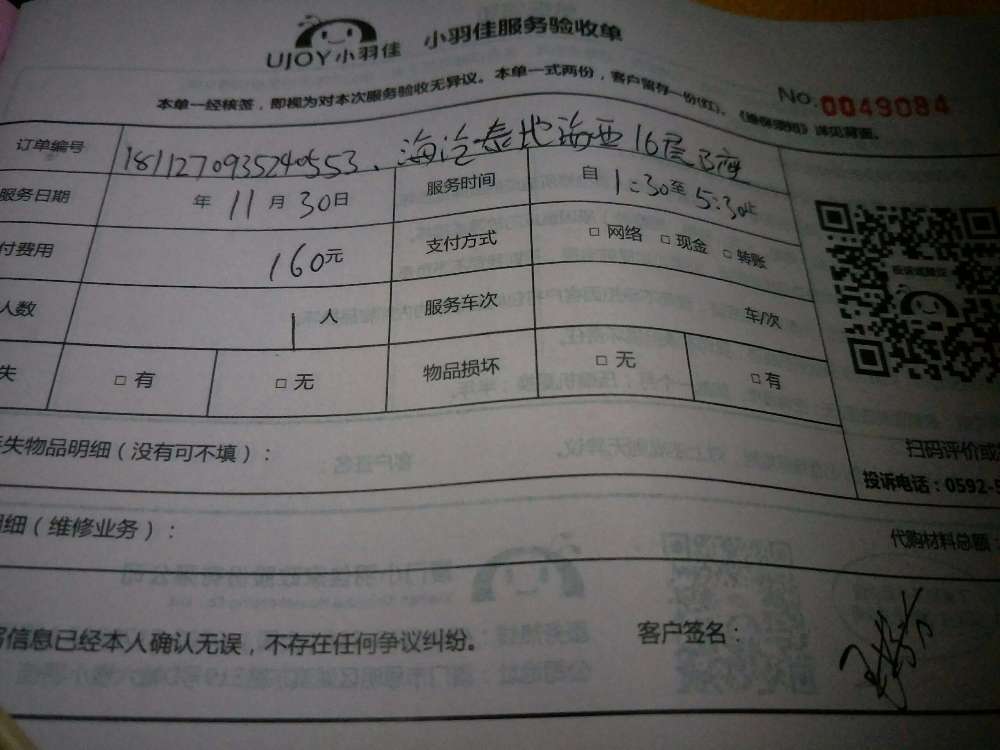 UJOY小羽佳 小羽佳服务验收单
本单一经核签，即视为对本次服务验收无异议。本单一式两份，客户留存一份(红)，《维保须知》详见背面。
No. 0049084
订单编号 1811270935240553、海沧泰地海西16层B座
服务日期 年 11月 30日 服务时间 自 1:30至 5:30止
付费用 160元 支付方式 □ 网络 □ 现金 □ 转账
人数 1 人 服务车次 车/次
失 □ 有 □ 无 物品损坏 □ 无 □ 有
投诉或建议
失物品明细（没有可不填）：
扫码评价或
投诉电话：0592-5
明细（维修业务）：
代购材料总额：
写信息已经本人确认无误，不存在任何争议纠纷。 客户签名：